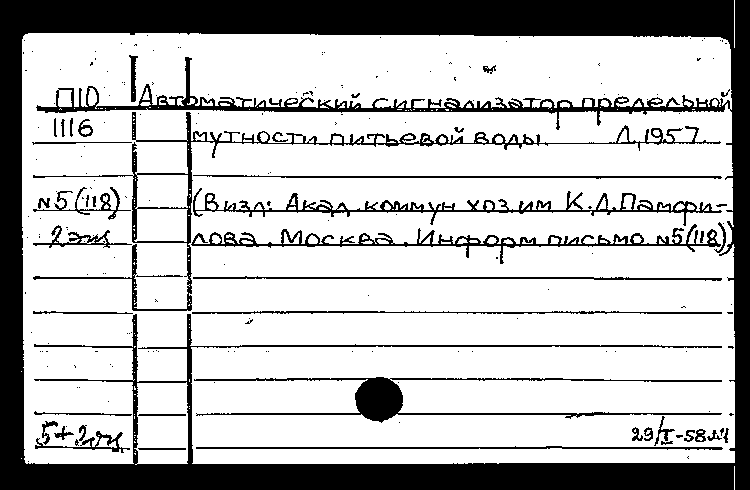 П10 Автоматический сигнализатор предельной
1116 мутности питьевой воды. Л, 1957
№5(118) (В изд: Акад. коммун хоз. им К.Д. Памфи-
2 экз лова. Москва. Информ письмо №5(118))
5+2 29/I-58